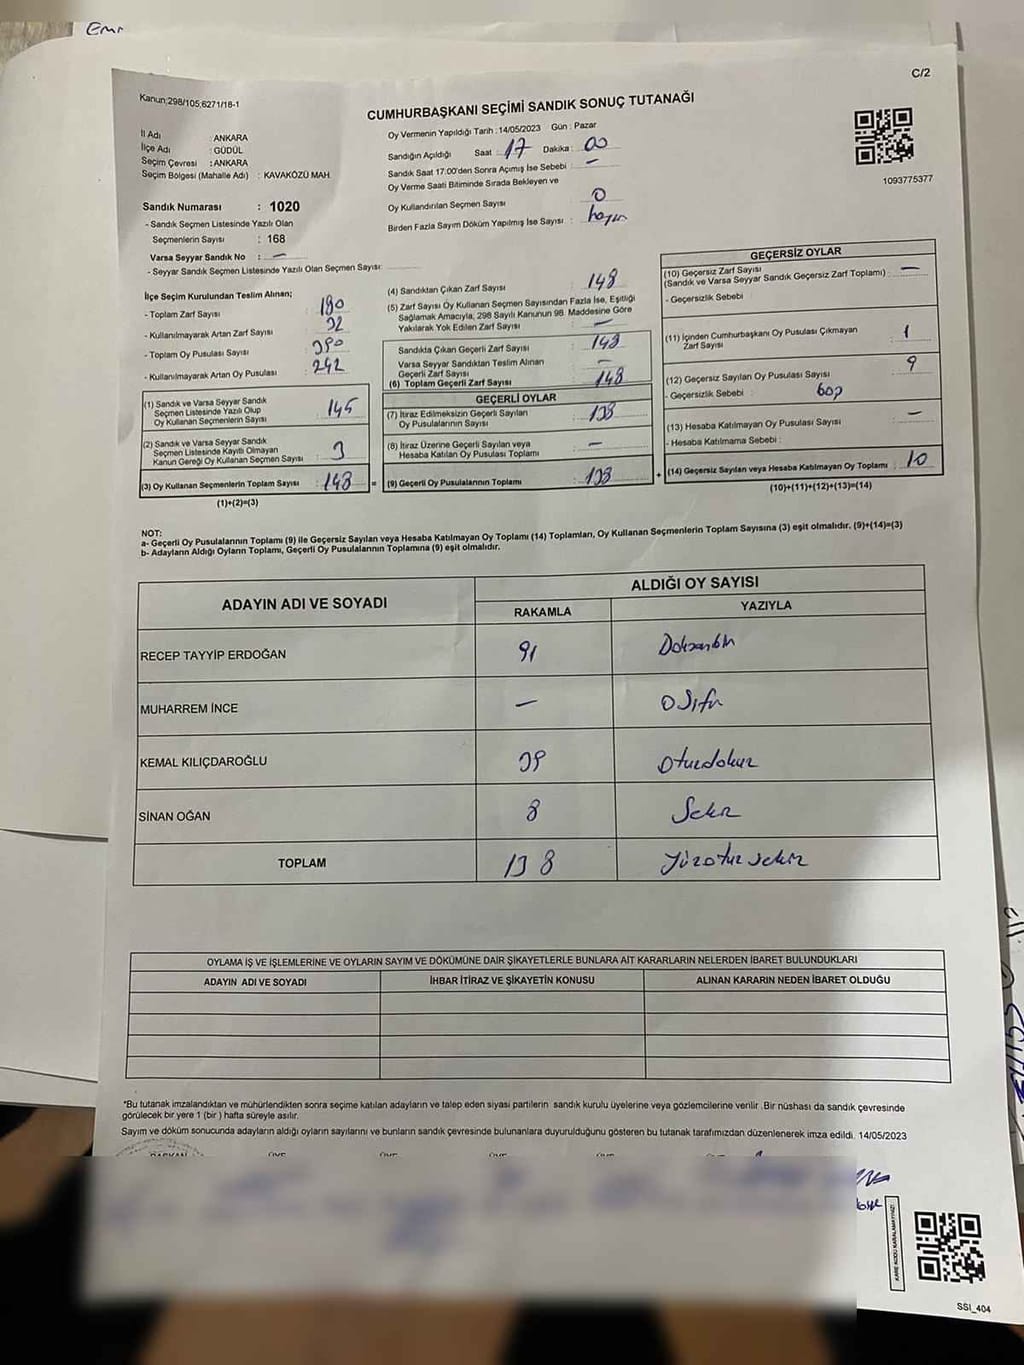 Emr
C/2
Kanun;298/105;6271/18-1
CUMHURBAŞKANI SEÇİMİ SANDIK SONUÇ TUTANAĞI
İl Adı : ANKARA
İlçe Adı : GÜDÜL
Seçim Çevresi : ANKARA
Seçim Bölgesi (Mahalle Adı) : KAVAKÖZÜ MAH.
Oy Vermenin Yapıldığı Tarih :14/05/2023 Gün : Pazar
Sandığın Açıldığı Saat : 17 Dakika : 00
Sandık Saat 17:00'den Sonra Açımış İse Sebebi : —
Oy Verme Saati Bitiminde Sırada Bekleyen ve
Oy Kullandırılan Seçmen Sayısı : 0
Birden Fazla Sayım Döküm Yapılmış İse Sayısı : hayır
1093775377
Sandık Numarası : 1020
- Sandık Seçmen Listesinde Yazılı Olan
Seçmenlerin Sayısı : 168
Varsa Seyyar Sandık No : —
- Seyyar Sandık Seçmen Listesinde Yazılı Olan Seçmen Sayısı:
İlçe Seçim Kurulundan Teslim Alınan;
- Toplam Zarf Sayısı : 180
- Kullanılmayarak Artan Zarf Sayısı : 32
- Toplam Oy Pusulası Sayısı : 390
- Kullanılmayarak Artan Oy Pusulası : 242
(1) Sandık ve Varsa Seyyar Sandık
Seçmen Listesinde Yazılı Olup
Oy Kullanan Seçmenlerin Sayısı : 145
(2) Sandık ve Varsa Seyyar Sandık
Seçmen Listesinde Kayıtlı Olmayan
Kanun Gereği Oy Kullanan Seçmen Sayısı : 3
(3) Oy Kullanan Seçmenlerin Toplam Sayısı : 148 =
(1)+(2)=(3)
(4) Sandıktan Çıkan Zarf Sayısı : 148
(5) Zarf Sayısı Oy Kullanan Seçmen Sayısından Fazla İse, Eşitliği
Sağlamak Amacıyla, 298 Sayılı Kanunun 98. Maddesine Göre
Yakılarak Yok Edilen Zarf Sayısı : —
Sandıkta Çıkan Geçerli Zarf Sayısı : 148
Varsa Seyyar Sandıktan Teslim Alınan
Geçerli Zarf Sayısı : —
(6) Toplam Geçerli Zarf Sayısı : 148
GEÇERLİ OYLAR
(7) İtiraz Edilmeksizin Geçerli Sayılan
Oy Pusulalarının Sayısı : 138
(8) İtiraz Üzerine Geçerli Sayılan veya
Hesaba Katılan Oy Pusulası Toplamı : —
(9) Geçerli Oy Pusulalarının Toplamı : 138 +
GEÇERSİZ OYLAR
(10) Geçersiz Zarf Sayısı
(Sandık ve Varsa Seyyar Sandık Geçersiz Zarf Toplamı) : —
- Geçersizlik Sebebi :
(11) İçinden Cumhurbaşkanı Oy Pusulası Çıkmayan
Zarf Sayısı : 1
(12) Geçersiz Sayılan Oy Pusulası Sayısı : 9
- Geçersizlik Sebebi :
(13) Hesaba Katılmayan Oy Pusulası Sayısı : —
- Hesaba Katılmama Sebebi :
(14) Geçersiz Sayılan veya Hesaba Katılmayan Oy Toplamı : 10
(10)+(11)+(12)+(13)=(14)
NOT:
a- Geçerli Oy Pusulalarının Toplamı (9) ile Geçersiz Sayılan veya Hesaba Katılmayan Oy Toplamı (14) Toplamları, Oy Kullanan Seçmenlerin Toplam Sayısına (3) eşit olmalıdır. (9)+(14)=(3)
b- Adayların Aldığı Oyların Toplamı, Geçerli Oy Pusulalarının Toplamına (9) eşit olmalıdır.
ADAYIN ADI VE SOYADI
ALDIĞI OY SAYISI
RAKAMLA YAZIYLA
RECEP TAYYİP ERDOĞAN 91 Doksanbir
MUHARREM İNCE — 0 Sıfır
KEMAL KILIÇDAROĞLU 39 Otuzdokuz
SİNAN OĞAN 8 Sekiz
TOPLAM 138 Yüzotuzsekiz
OYLAMA İŞ VE İŞLEMLERİNE VE OYLARIN SAYIM VE DÖKÜMÜNE DAİR ŞİKAYETLERLE BUNLARA AİT KARARLARIN NELERDEN İBARET BULUNDUKLARI
ADAYIN ADI VE SOYADI İHBAR İTİRAZ VE ŞİKAYETİN KONUSU ALINAN KARARIN NEDEN İBARET OLDUĞU
*Bu tutanak imzalandıktan ve mühürlendikten sonra seçime katılan adayların ve talep eden siyasi partilerin sandık kurulu üyelerine veya gözlemcilerine verilir .Bir nüshası da sandık çevresinde
görülecek bir yere 1 (bir ) hafta süreyle asılır.
Sayım ve döküm sonucunda adayların aldığı oyların sayılarını ve bunların sandık çevresinde bulunanlara duyurulduğunu gösteren bu tutanak tarafımızdan düzenlenerek imza edildi. 14/05/2023
BAŞKAN ÜYE ÜYE ÜYE ÜYE
KARE KODU KARALAMAYINIZ!
SSİ_404